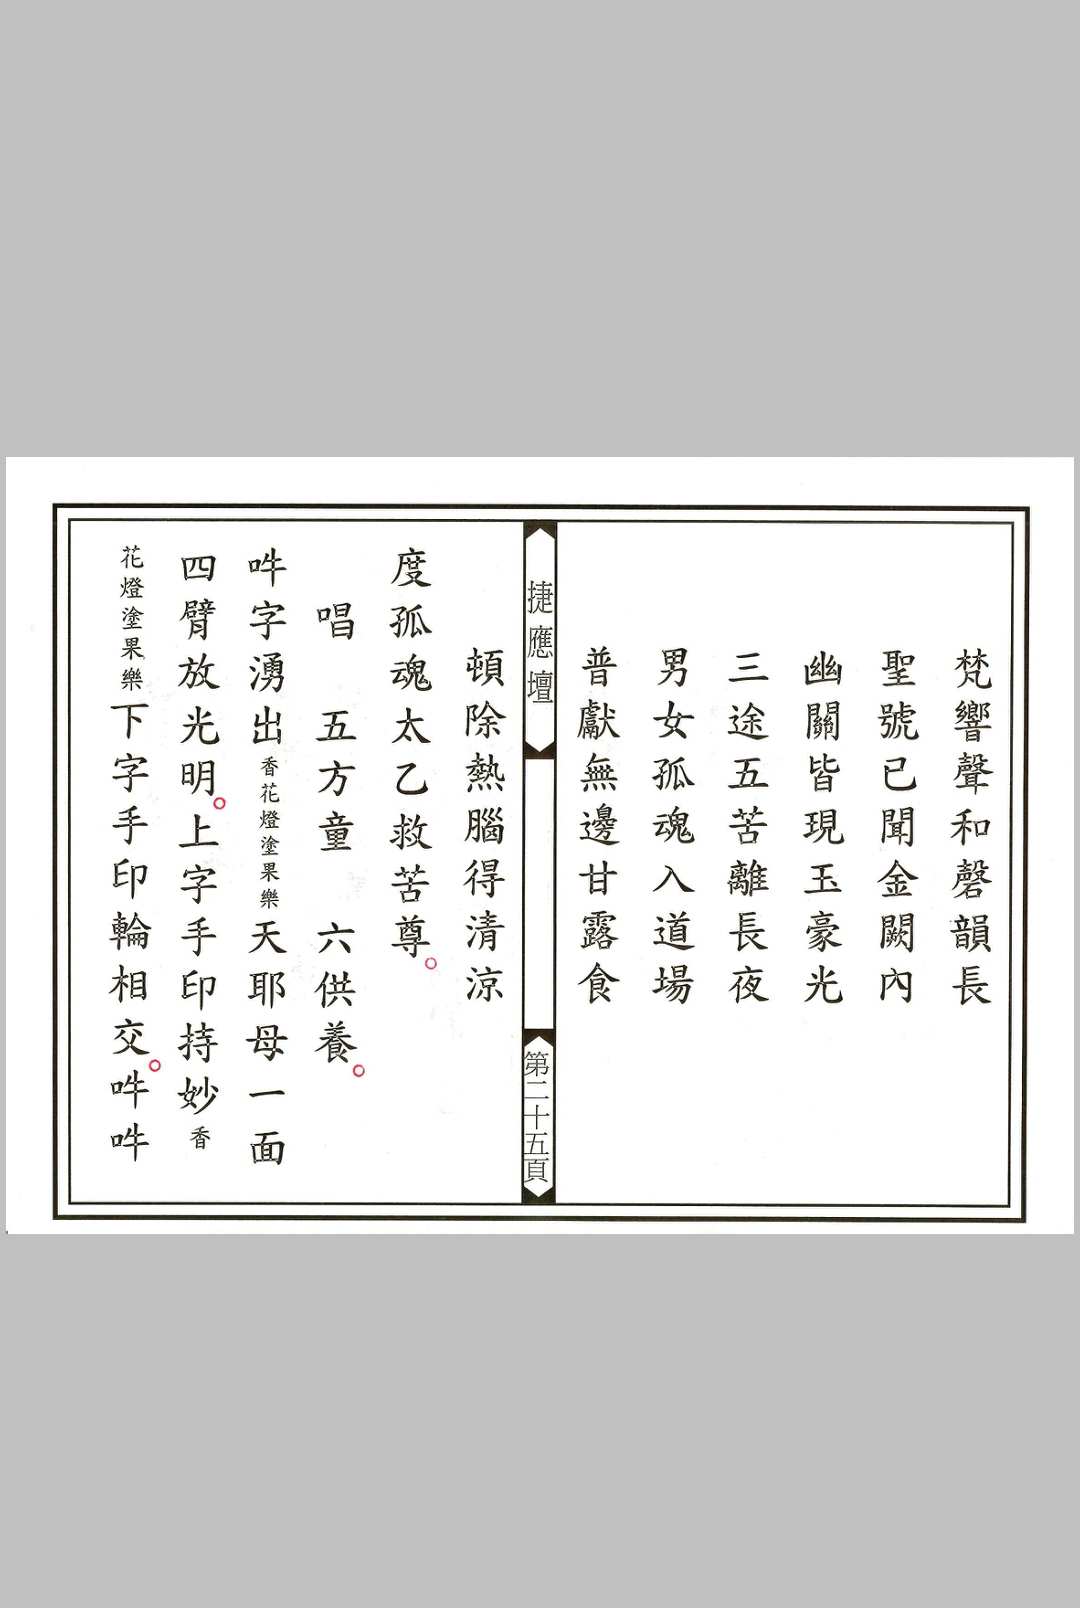 梵響聲和磬韻長
聖號已聞金闕內
幽關皆現玉豪光
三途五苦離長夜
男女孤魂入道場
普獻無邊甘露食
捷應壇
第二十五頁
頓除熱腦得清涼
度孤魂太乙救苦尊。
唱 五方童 六供養。
吽字湧出香花燈塗果樂天耶母一面
四臂放光明。上字手印持妙香
花燈塗果樂下字手印輪相交。吽吽